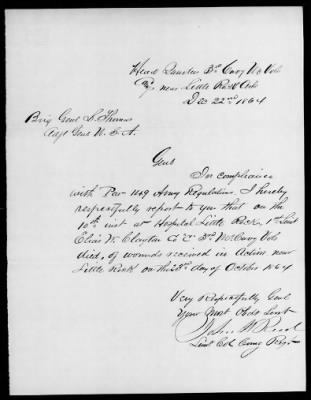 Head Quarters 3d Cavy Mo Vols
near Little Rock Ark
Dec 22nd 1864
Brig Genl L. Thomas
Adjt Genl U. S. A.
Genl
In compliance
with Par 1649 Army Regulations I hereby
respectfully report to you that on the
10th inst at Hospital Little Rock, 1st Lieut
Elias W Clayton Co "C" 3d Mo Cavy Vols
died, of wounds received in Action near
Little Rock on the day of October 1864
Very Respectfully Genl
Your Most Obdt Servt
John W Reed
Lieut Col Comg Regt